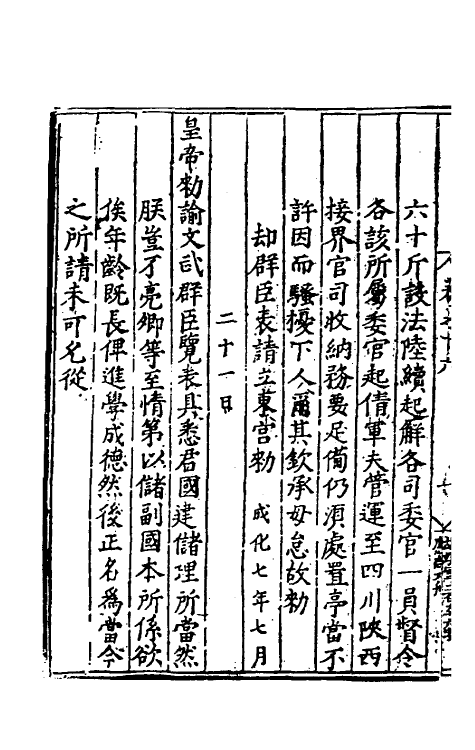 六十斤設法陸續起解各司委官一員督令
各該所屬委官起倩軍夫管運至四川陝西
接界官司收納務要足備仍須處置亭當不
許因而騷擾下人爾其欽承毋怠故勑
却群臣表請立東宮勑　成化七年七月
二十一日
皇帝勑諭文武群臣覽表具悉君國建儲理所當然
朕豈不亮卿等至情第以儲副國本所係欲
俟年齡既長俾進學成德然後正名爲當今
之所請未可允從